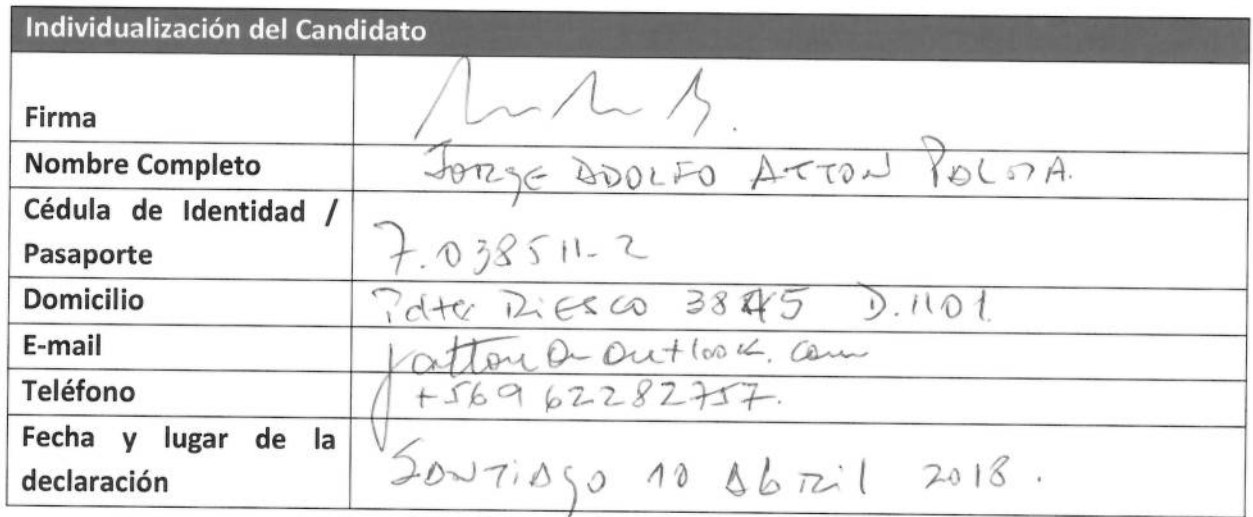 Individualización del Candidato
Firma
Nombre Completo JORGE ADOLFO ATTON PALMA.
Cédula de Identidad /
Pasaporte 7.038511-2
Domicilio Pdte RIESCO 3845 D.1101
E-mail jatton@outlook.com
Teléfono +569 62282757.
Fecha y lugar de la
declaración SANTIAGO 10 Abril 2018.